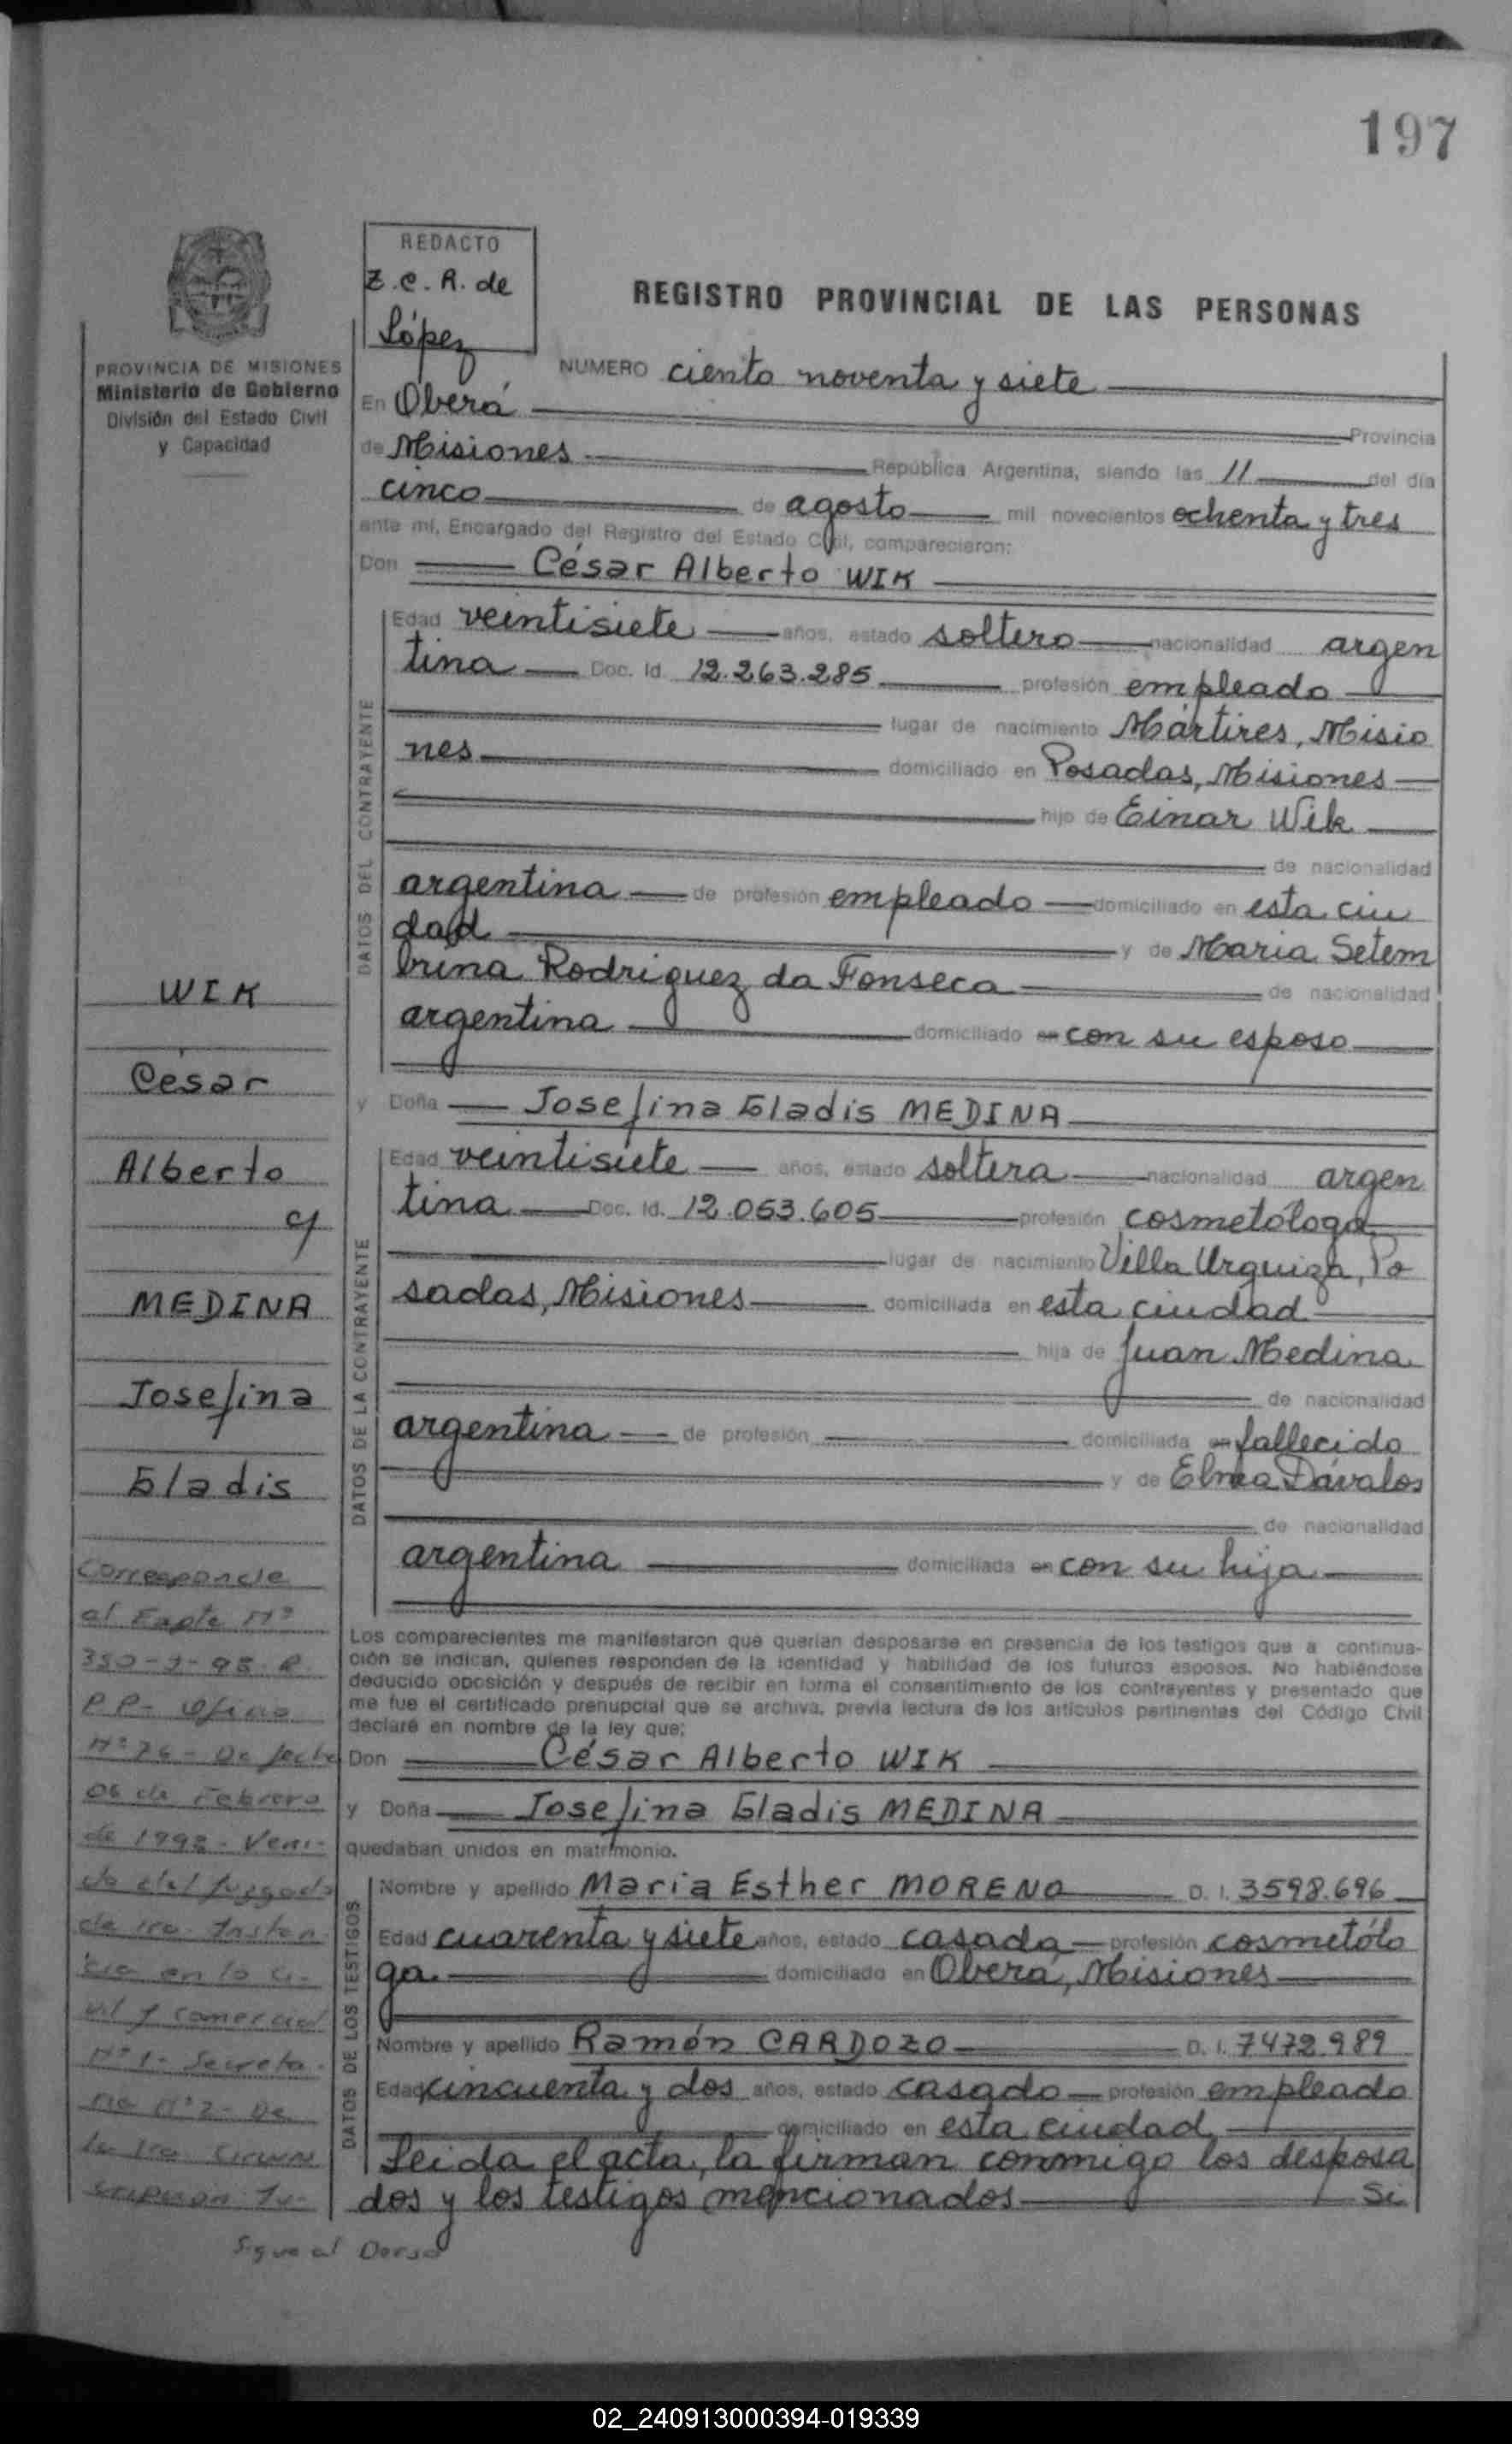 197
REDACTO
Z.C.R. de
López
REGISTRO PROVINCIAL DE LAS PERSONAS
PROVINCIA DE MISIONES
Ministerio de Gobierno
División del Estado Civil
y Capacidad
NUMERO ciento noventa y siete
En Oberá
Provincia
de Misiones República Argentina, siendo las 11 del día
cinco de agosto mil novecientos ochenta y tres
ante mí, Encargado del Registro del Estado Civil, comparecieron:
Don César Alberto WIK
DATOS DEL CONTRAYENTE
Edad veintisiete años, estado soltero nacionalidad argen
tina Doc. Id. 12.263.285 profesión empleado
lugar de nacimiento Mártires, Misio
nes domiciliado en Posadas, Misiones
hijo de Einar Wik
de nacionalidad
argentina de profesión empleado domiciliado en esta ciu
dad y de Maria Setem
brina Rodriguez da Fonseca de nacionalidad
argentina domiciliado en con su esposo
y Doña Josefina Gladis MEDINA
DATOS DE LA CONTRAYENTE
Edad veintisiete años, estado soltera nacionalidad argen
tina Doc. Id. 12.053.605 profesión cosmetóloga
lugar de nacimiento Villa Urquiza, Po
sadas, Misiones domiciliada en esta ciudad
hija de Juan Medina
de nacionalidad
argentina de profesión domiciliada en fallecido
y de Elma Dávalos
de nacionalidad
argentina domiciliada en con su hija
Los comparecientes me manifestaron que querían desposarse en presencia de los testigos que a continua-
ción se indican, quienes responden de la identidad y habilidad de los futuros esposos. No habiéndose
deducido oposición y después de recibir en forma el consentimiento de los contrayentes y presentado que
me fue el certificado prenupcial que se archiva, previa lectura de los artículos pertinentes del Código Civil
declaré en nombre de la ley que:
Don César Alberto WIK
y Doña Josefina Gladis MEDINA
quedaban unidos en matrimonio.
DATOS DE LOS TESTIGOS
Nombre y apellido Maria Esther MORENO D. I. 3598.696
Edad cuarenta y siete años, estado casada profesión cosmetólo
ga domiciliado en Oberá, Misiones
Nombre y apellido Ramón CARDOZO D. I. 7472.989
Edad cincuenta y dos años, estado casado profesión empleado
domiciliado en esta ciudad
Leida el acta, la firman conmigo los desposa
dos y los testigos mencionados Si
WIK
César
Alberto
y
MEDINA
Josefina
Gladis
Corresponde
al Expte Nº
P.P- Oficio
Nº 76 - De fecha
06 de Febrero
de 1998 - Veni-
do del Juzgado
de 1ra. Instan-
cia en lo Ci-
vil y Comercial
Nº 1- Secreta-
ria Nº 2- De
la 1ra Circun
scripción Ju-
Sigue al Dorso
02_240913000394-019339